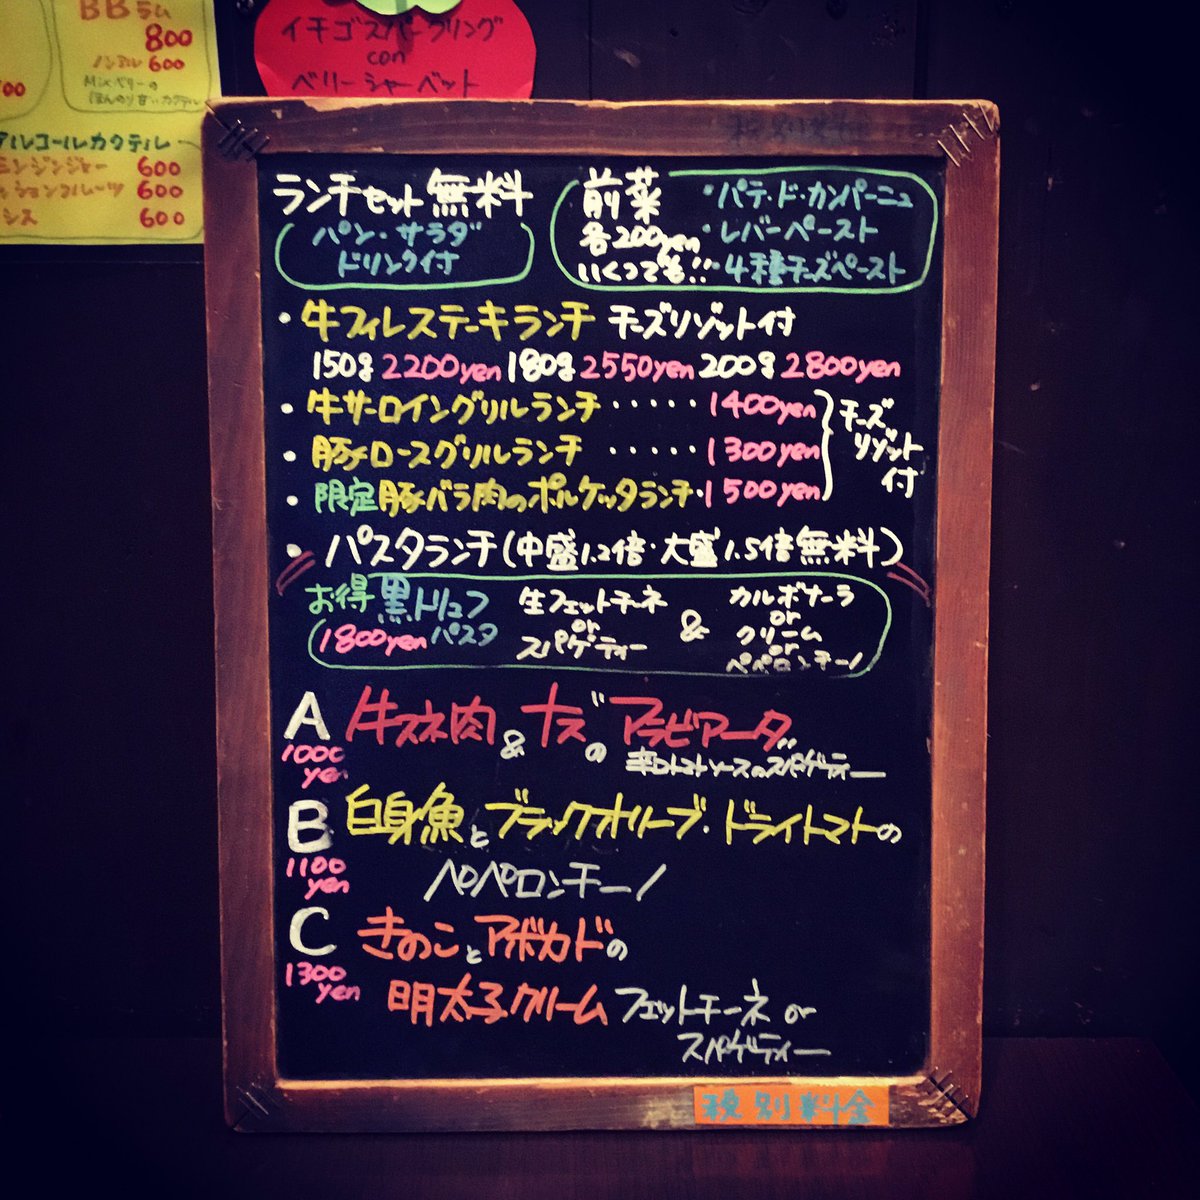 BBラム
800
ノンアル 600
Mixベリーの
ほんのり甘いカクテル
ルコールカクテル
ンジンジャー 600
ッションフルーツ 600
シス 600
イチゴスパークリング
con
ベリーシャーベット
ランチセット無料
パン・サラダ
ドリンク付
前菜
各200yen
いくつでも!!
・パテ・ド・カンパーニュ
・レバーペースト
・4種チーズペースト
・牛フィレステーキランチ チーズリゾット付
150g 2200yen 180g 2550yen 200g 2800yen
・牛サーロイングリルランチ ・・・・・ 1400yen
・豚肩ロースグリルランチ ・・・・・ 1300yen
・限定豚バラ肉のポルケッタランチ・1500yen
チーズ
リゾット
付
・パスタランチ(中盛1.2倍・大盛1.5倍無料)
お得黒トリュフ
1800yenパスタ
生フェットチーネ
or
スパゲティー
&
カルボナーラ
or
クリーム
or
ペペロンチーノ
A 牛スネ肉&ナスのアラビアータ
1000
yen
辛口トマトソースのスパゲティー
B 白身魚とブラックオリーブ・ドライトマトの
1100
yen
ペペロンチーノ
C きのことアボカドの
1300
yen
明太子クリーム フェットチーネ or
スパゲティー
税別料金